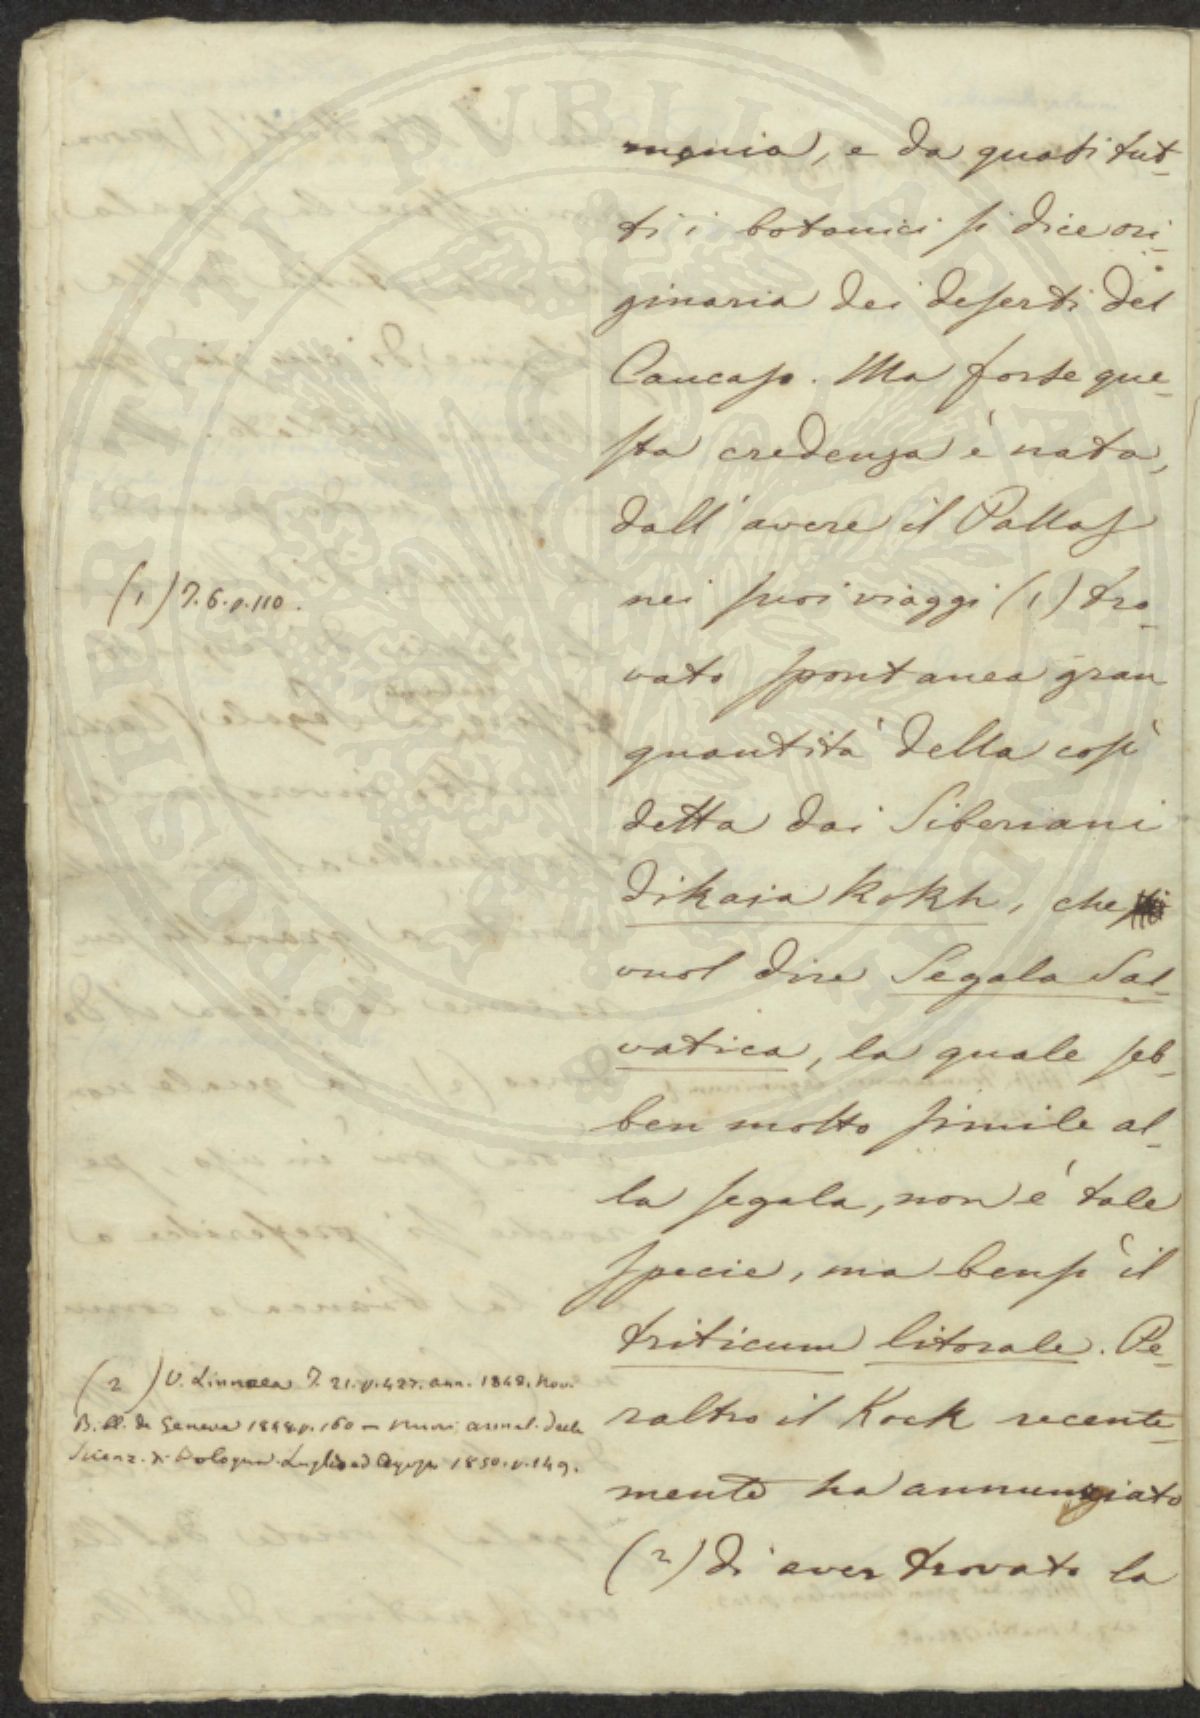 mania, e da quasi tut-
ti i botanici si dice ori-
ginaria dei deserti del
Caucaso. Ma forse que-
sta credenza è nata,
dall'avere il Pallas
nei suoi viaggi (1) tro-
vato spontanea gran
quantità della così
detta dai Siberiani
dikaia kokh, che
vuol dire Segala Sal-
vatica, la quale seb-
ben molto simile al-
la segala, non è tale
specie, ma bensì il
triticum litorale. Pe-
raltro il Kock recente-
mente ha annunziato
(2) di aver trovato la
(1) T. 6. p. 110.
(2) V. Linnaea T. 21. p. 427. ann. 1848. Nov.
B. de Geneva 1848 p. 160 — Nuovi annal. delle
Scienz. di Bologna Luglio ed Agosto 1850. p. 149.
PROSPERITATI PVBLICAE AVGENDAE